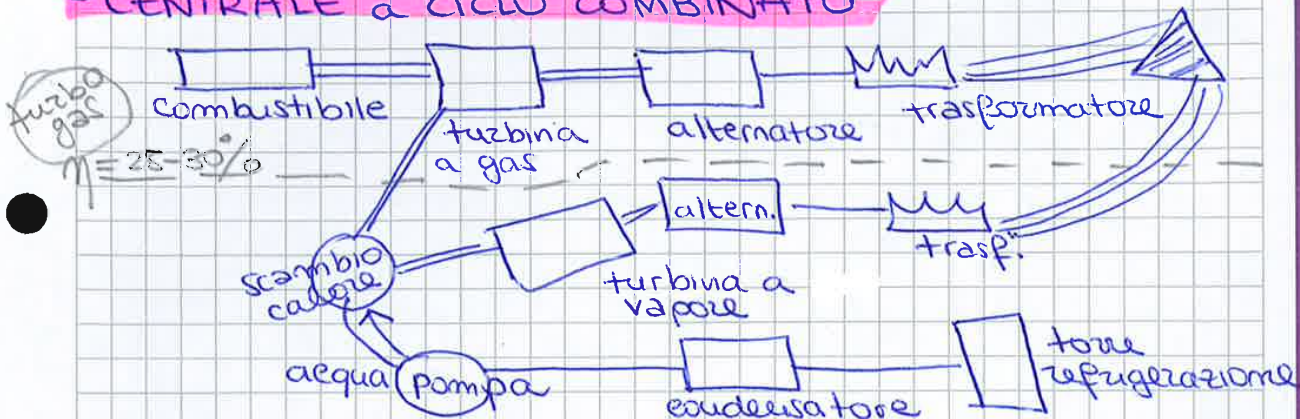 CENTRALE a CICLO COMBINATO
turbo
gas
η = 25-30%
combustibile
turbina
a gas
alternatore
trasformatore
altern.
trasf.
scambio
calore
turbina a
vapore
acqua
pompa
condensatore
torre
refrigerazione